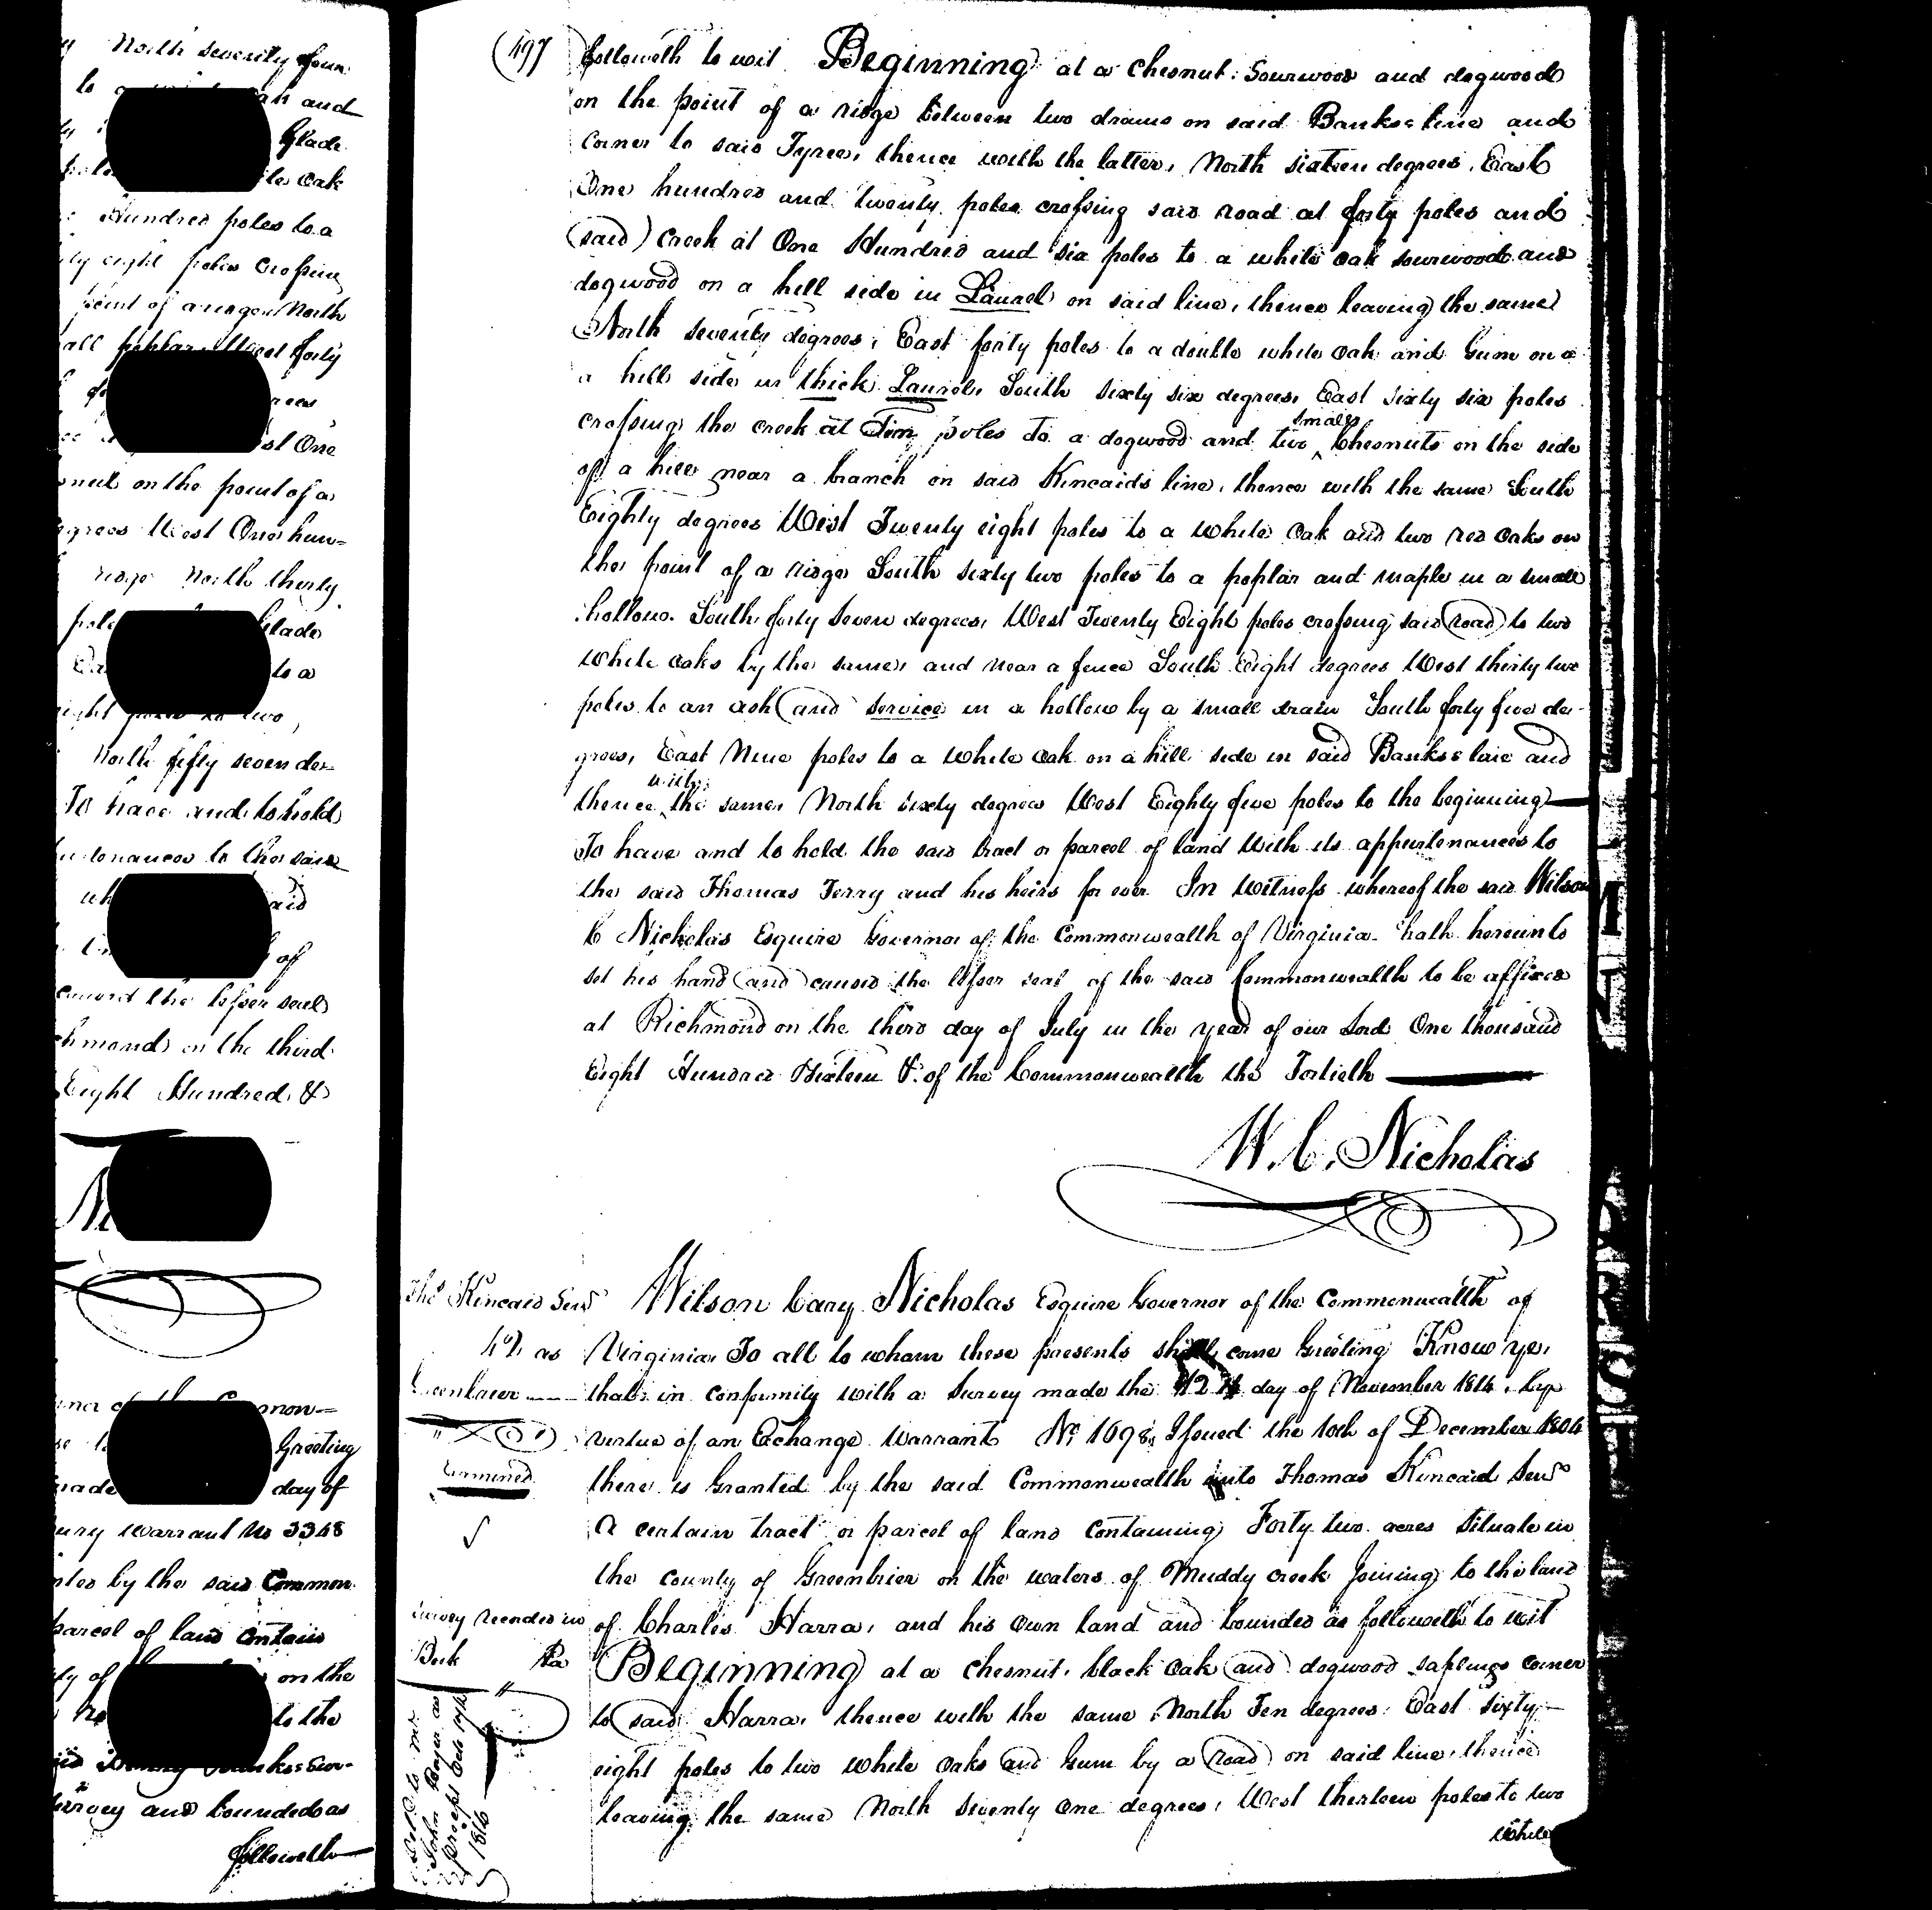 y North seventy four
to a oak and
Glade
ite oak
Hundred poles to a
ty eight poles crossing
point of a ridge North
all poplar West forty
rees
st One
nut on the point of a
egrees West One hun=
ridge North thirty
pole Glade
Ea to a
ight poles to two
North fifty seven de=
To have and to hold
urtenances to the said
wh aid
of
caused the lesser seal
chmond on the third
Eight Hundred &
Ni
nor of the Common=
Greeting
made day of
ury warrant No 3348
nted by the said Common
parcel of land contain
ty of on the
to the
Banks Sur-
survey and bounded as
followeth
(497
followeth to wit Beginning at a Chesnut. Sourwood and dogwood
on the point of a ridge between two drains on said Banks's line and
Corner to said Tyree, thence with the latter, North sixteen degrees, East
One hundred and twenty poles crossing said road at forty poles and
(said) Creek at One Hundred and six poles to a white oak sourwood and
dogwood on a hill side in Laurel on said line, thence leaving the same
North seventy degrees, East forty poles to a double white oak and Gum on a
a hill side in thick Laurel, South sixty six degrees, East sixty six poles
crossing the creek at Ten poles to a dogwood and two small Chesnuts on the side
of a hill near a branch on said Kincaids line, thence with the same South
Eighty degrees West Twenty eight poles to a White Oak and two red oaks on
the point of a ridge South sixty two poles to a poplar and maple in a small
hollow. South forty seven degrees, West Twenty Eight poles crossing said road to two
White oaks by the same, and near a fence South Eight degrees West thirty two
poles to an ash and service in a hollow by a small drain South forty five de-
grees, East Nine poles to a White Oak on a hill side in said Banks's line and
thence with the same North sixty degrees West Eighty five poles to the beginning
To have and to hold the said tract or parcel of land With its appurtenances to
the said Thomas Terry and his heirs for ever. In Witness whereof the said Wilson
C Nicholas Esquire Governor of the Commonwealth of Virginia hath hereunto
set his hand and caused the lesser seal of the said Commonwealth to be affixed
at Richmond on the third day of July in the year of our Lord One thousand
Eight Hundred Sixteen & of the Commonwealth the Fortieth
W. C. Nicholas
Thos Kincaid Senr
42 as
Greenbrier
Examined
Survey recorded in
Book Pa
Deld to mr
John Boyer as
pr rcept
1816
Wilson Cary Nicholas Esquire Governor of the Commonwealth of
Virginia To all to whom these presents shall come Greeting Know ye,
that in conformity with a Survey made the 12th day of November 1814 by
virtue of an Exchange Warrant No 1698 Issued the 10th of December 1804
there is Granted by the said Commonwealth unto Thomas Kincaid Senr
A certain tract or parcel of land Containing Forty two acres Situate in
the county of Greenbrier on the waters of Muddy creek Joining to the land
of Charles Harra, and his Own land and bounded as followeth to wit
Beginning at a chesnut, black Oak and dogwood saplings corner
to said Harra, thence with the same North Ten degrees, East sixty
eight poles to two White Oaks and Gum by a road on said line, thence
leaving the same North Seventy One degrees, West thirteen poles to two
White